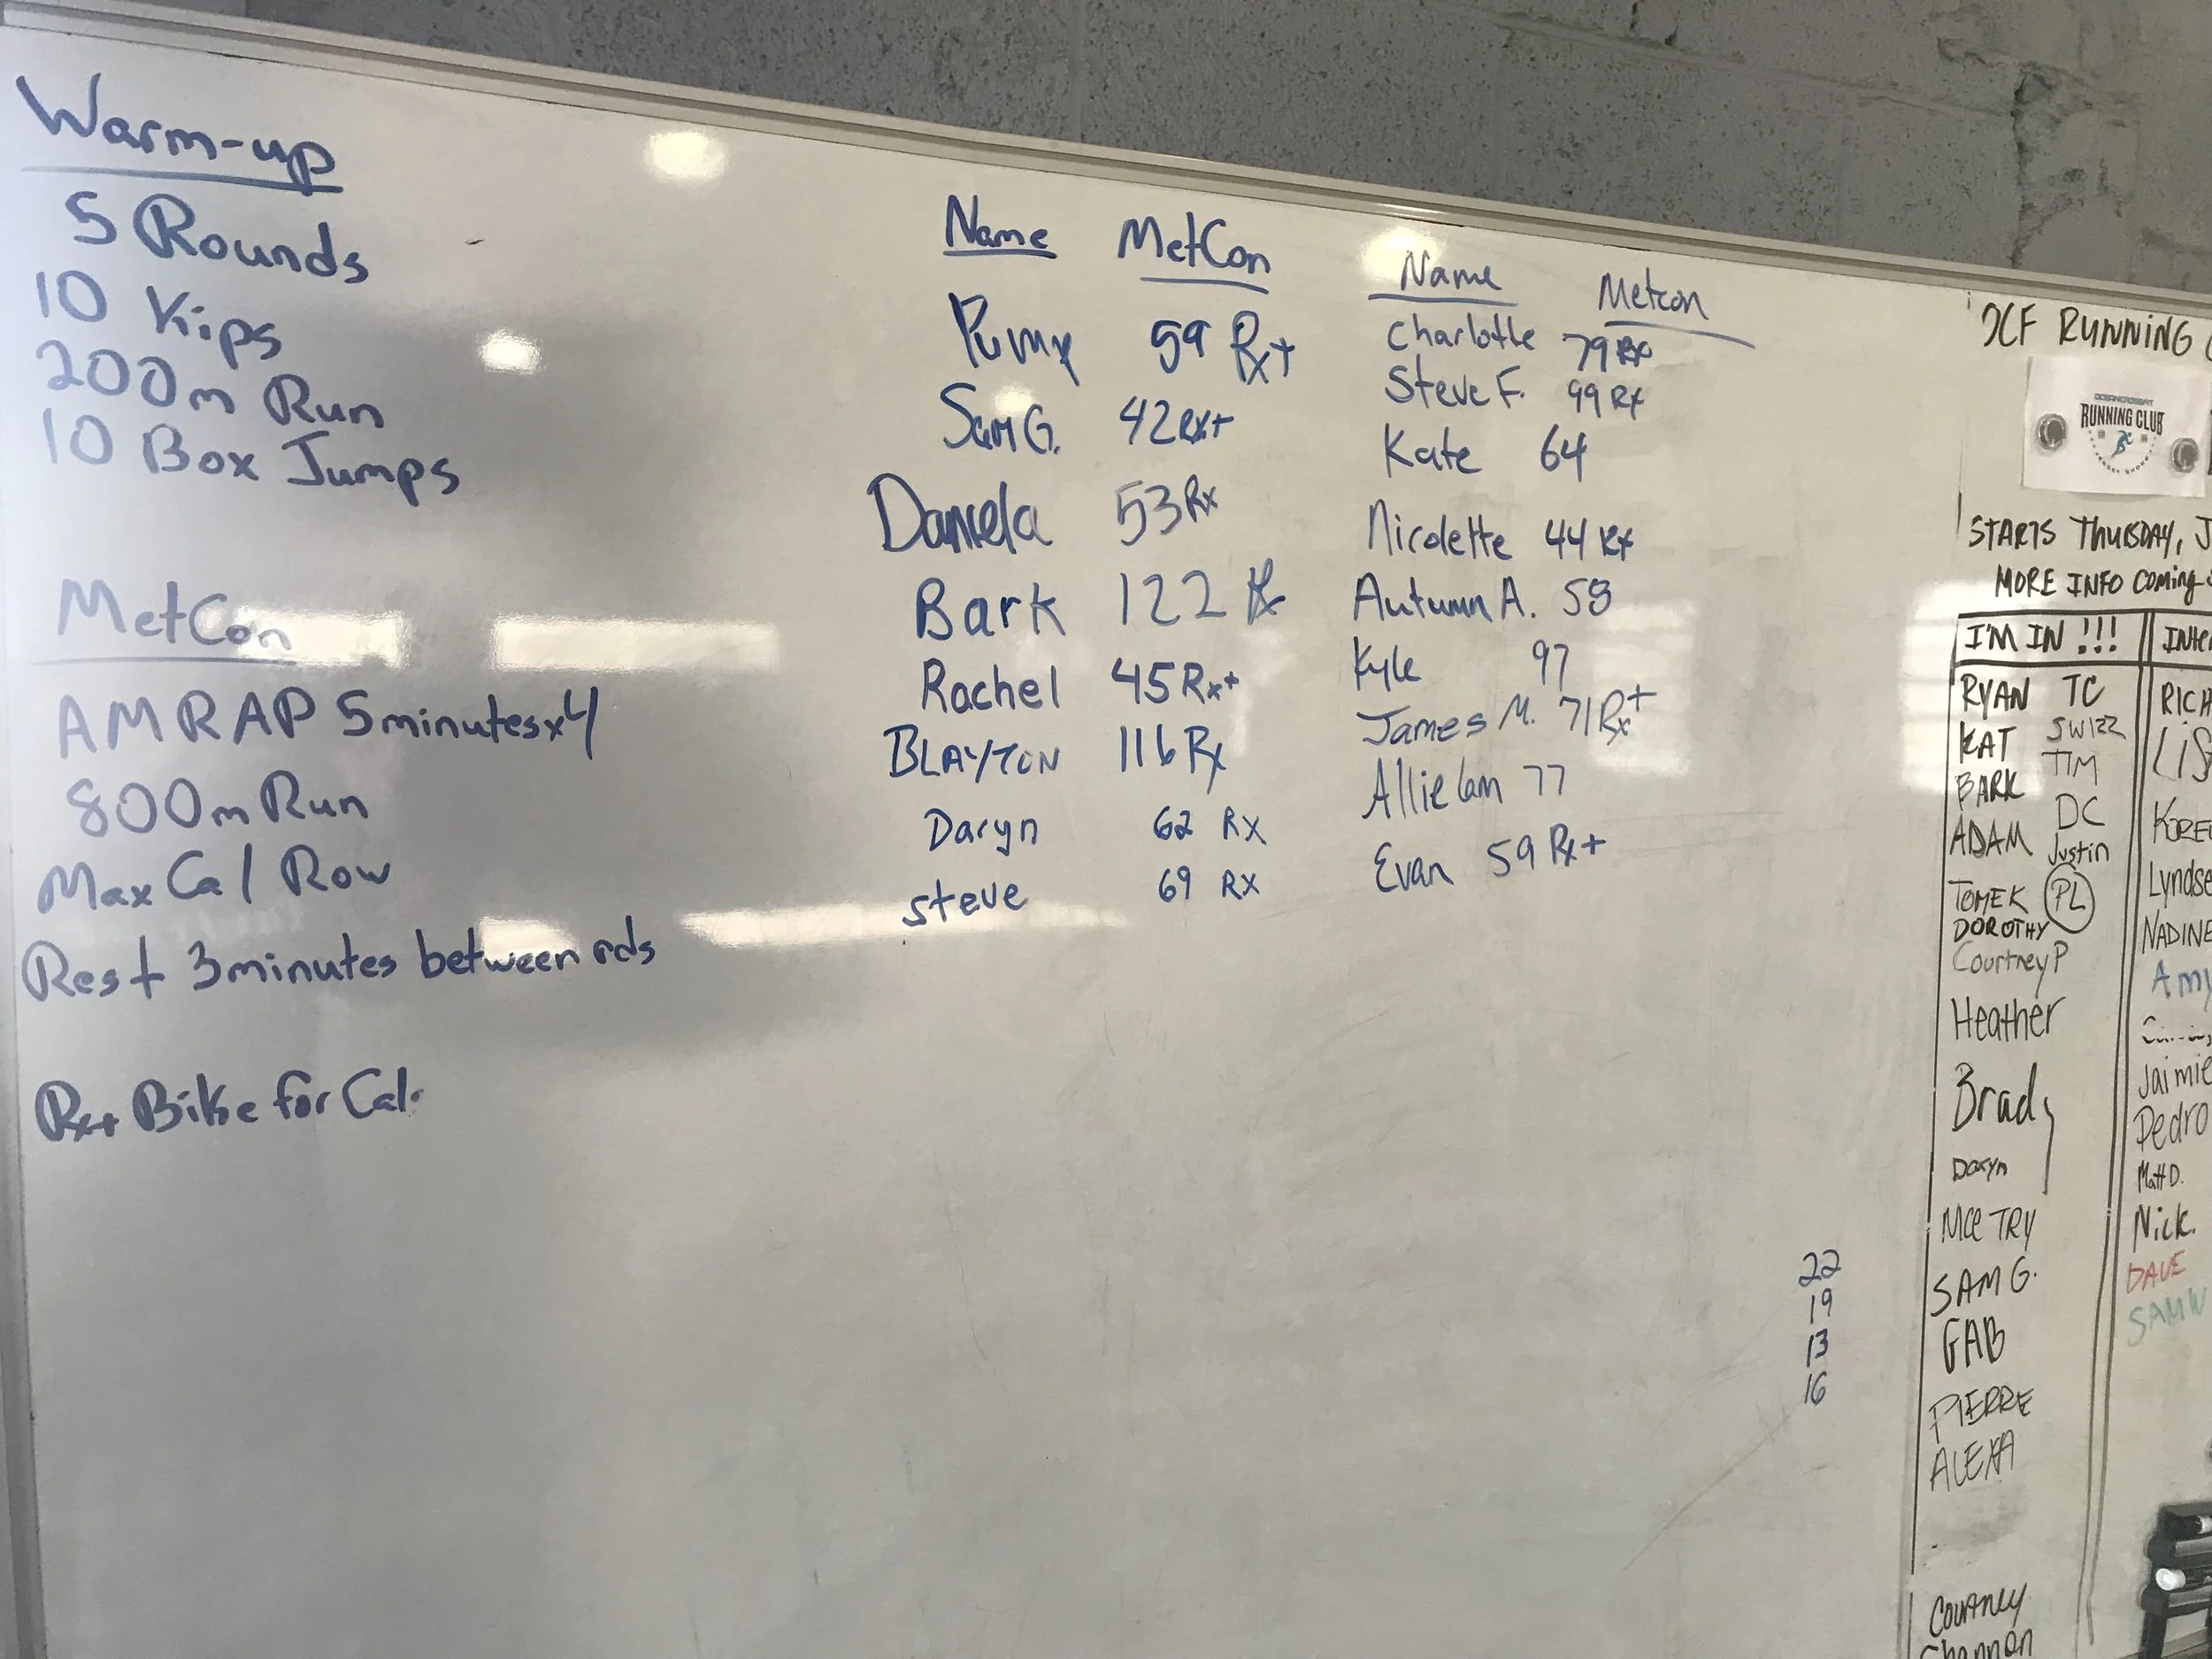 Warm-up
5 Rounds
10 Kips
200m Run
10 Box Jumps
MetCon
AMRAP 5minutesx4
800m Run
Max Cal Row
Rest 3minutes between rds
Rx+ Bike for Cal.
Name MetCon
59 Rx+
Sam G. 42 Rx+
Daniela 53 Rx
Bark 122 Rx
Rachel 45 Rx+
BLAYTON 116 Rx
Daryn 62 Rx
steve 69 Rx
Name Metcon
Charlotte 79 Rx
Steve F. 99 Rx
Kate 64
Nicolette 44 Rx
Autumn A. 58
Kyle 97
James M. 71 Rx+
Allie 77
Evan 59 Rx+
22
19
13
16
OCF RUNNING
OCEANCROSSFIT
RUNNING CLUB
STARTS THURSDAY, J
MORE INFO COMING
I'M IN !!!
RYAN TC
KAT SWIZZ
BARK TIM
ADAM DC
Justin
TOMEK PL
DOROTHY
Courtney P
Heather
Brady
Daryn
SAM G.
GAB
PIERRE
ALEXA
Courtney
Shannon
INTE
RICH
LIS
KORE
Lyndse
NADINE
Amy
Jaimie
Pedro
Matt D.
Nick.
DAVE
SAM W